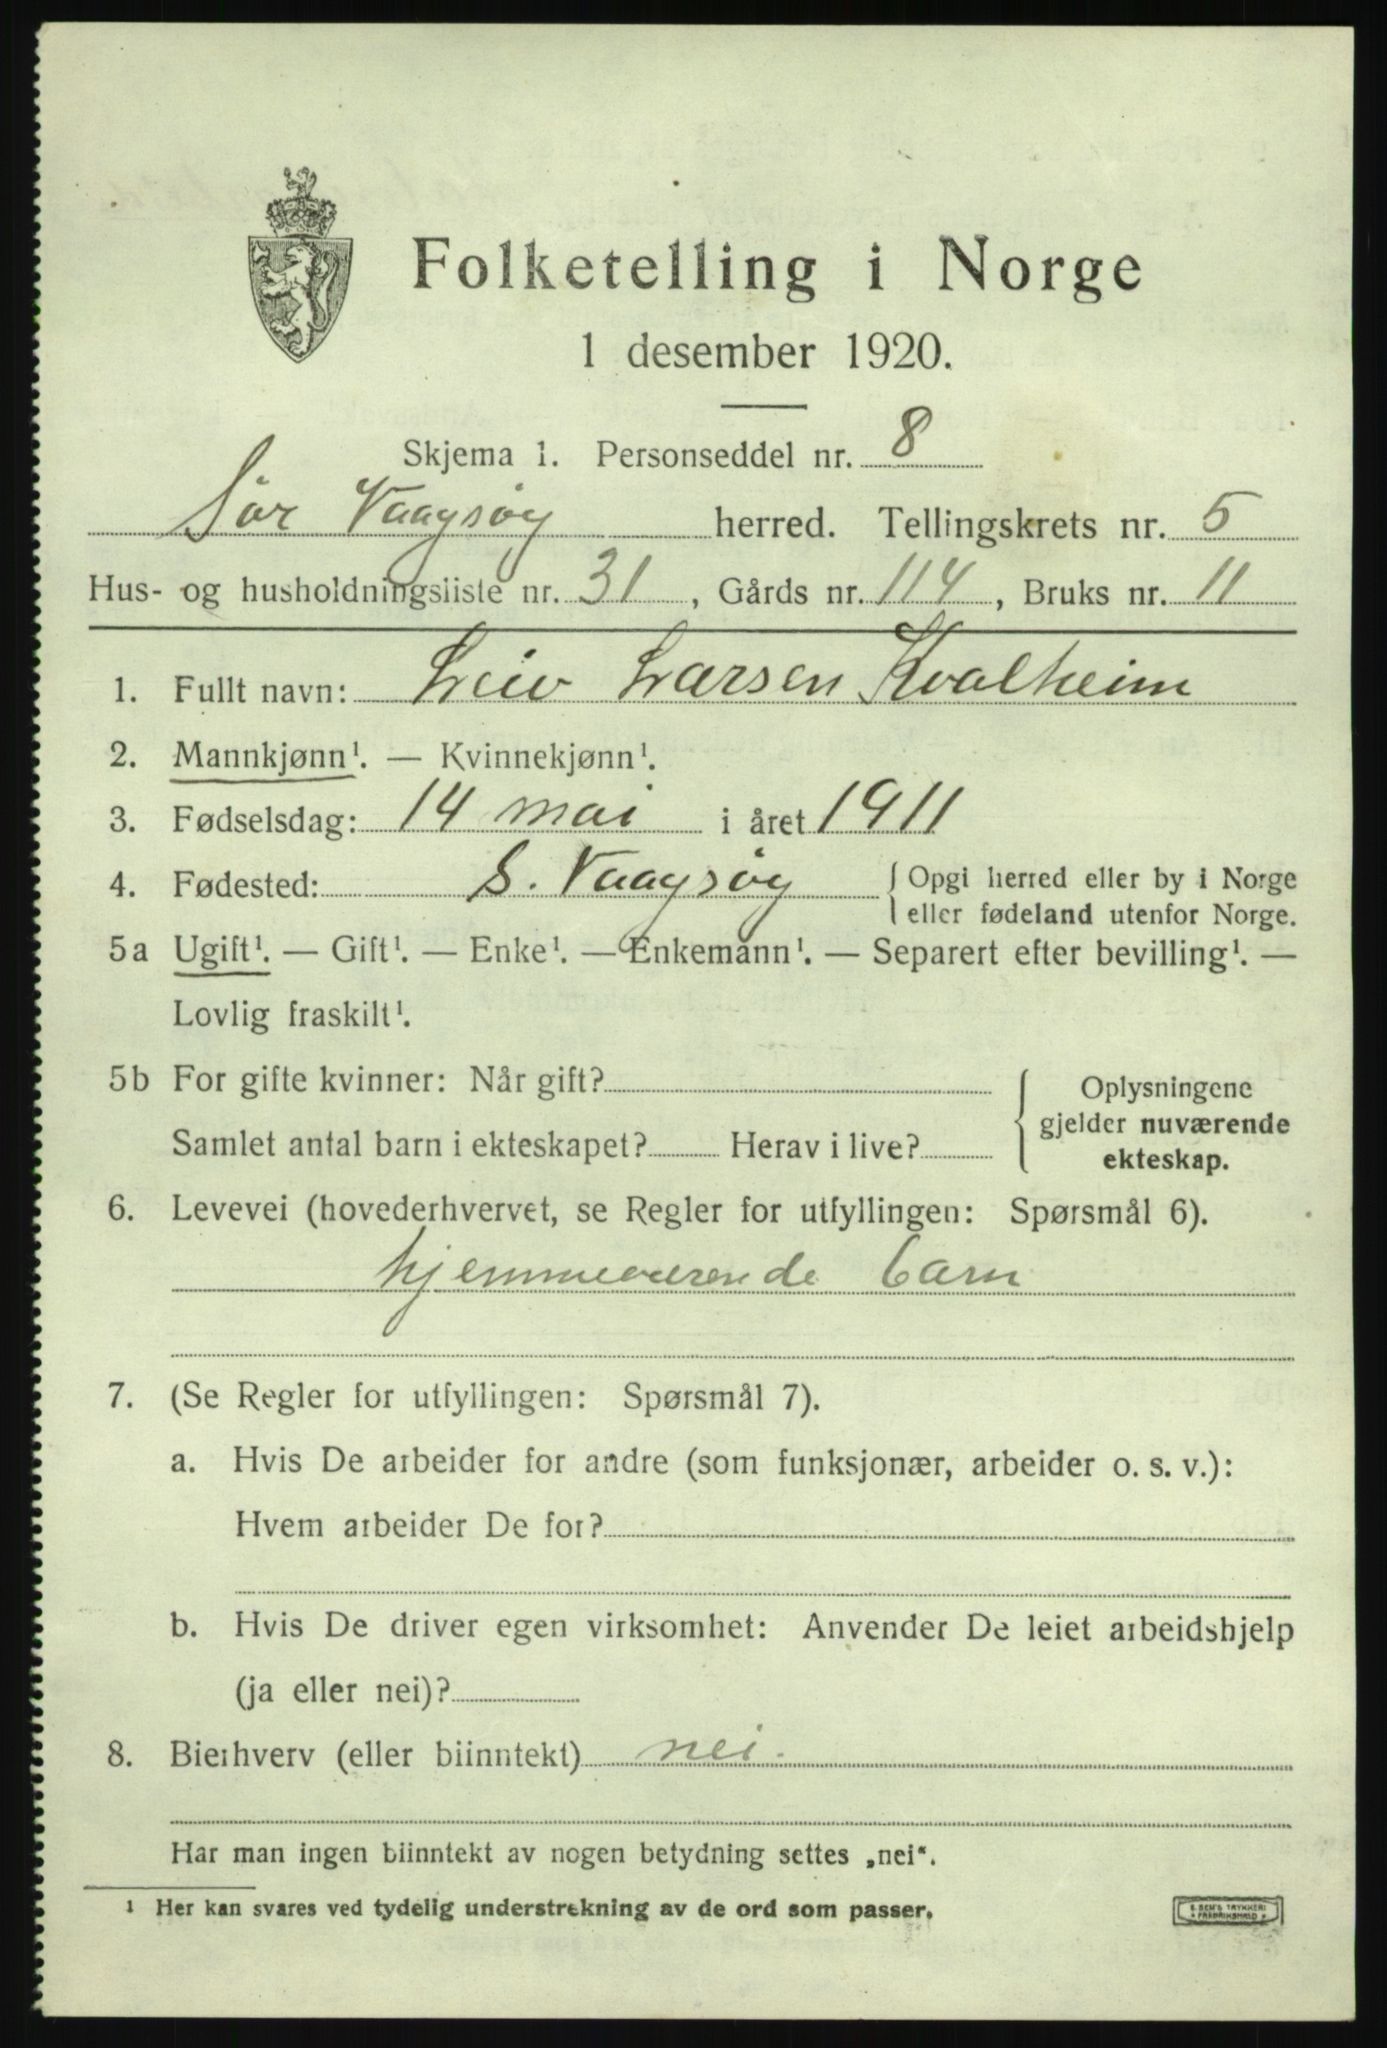 Folketelling i Norge
1 desember 1920.
Skjema 1. Personseddel nr. 8
Sör Vaagsøy herred. Tellingskrets nr. 5
Hus- og husholdningsliste nr. 31, Gårds nr. 114, Bruks nr. 11
1. Fullt navn: Leiv Larsen Kvalheim
2. Mannkjønn¹. — Kvinnekjønn¹.
3. Fødselsdag: 14 mai i året 1911
4. Fødested: S. Vaagsøy { Opgi herred eller by i Norge
eller fødeland utenfor Norge.
5a Ugift¹. — Gift¹. — Enke¹. — Enkemann¹. — Separert efter bevilling¹. —
Lovlig fraskilt¹.
5b For gifte kvinner: Når gift?
Samlet antal barn i ekteskapet? Herav i live?
{ Oplysningene
gjelder nuværende
ekteskap.
6. Levevei (hovederhvervet, se Regler for utfyllingen: Spørsmål 6).
hjemmeværende barn
7. (Se Regler for utfyllingen: Spørsmål 7).
a. Hvis De arbeider for andre (som funksjonær, arbeider o. s. v.):
Hvem arbeider De for?
b. Hvis De driver egen virksomhet: Anvender De leiet arbeidshjelp
(ja eller nei)?
8. Bierhverv (eller biinntekt) nei.
Har man ingen biinntekt av nogen betydning settes „nei“.
¹ Her kan svares ved tydelig understrekning av de ord som passer.